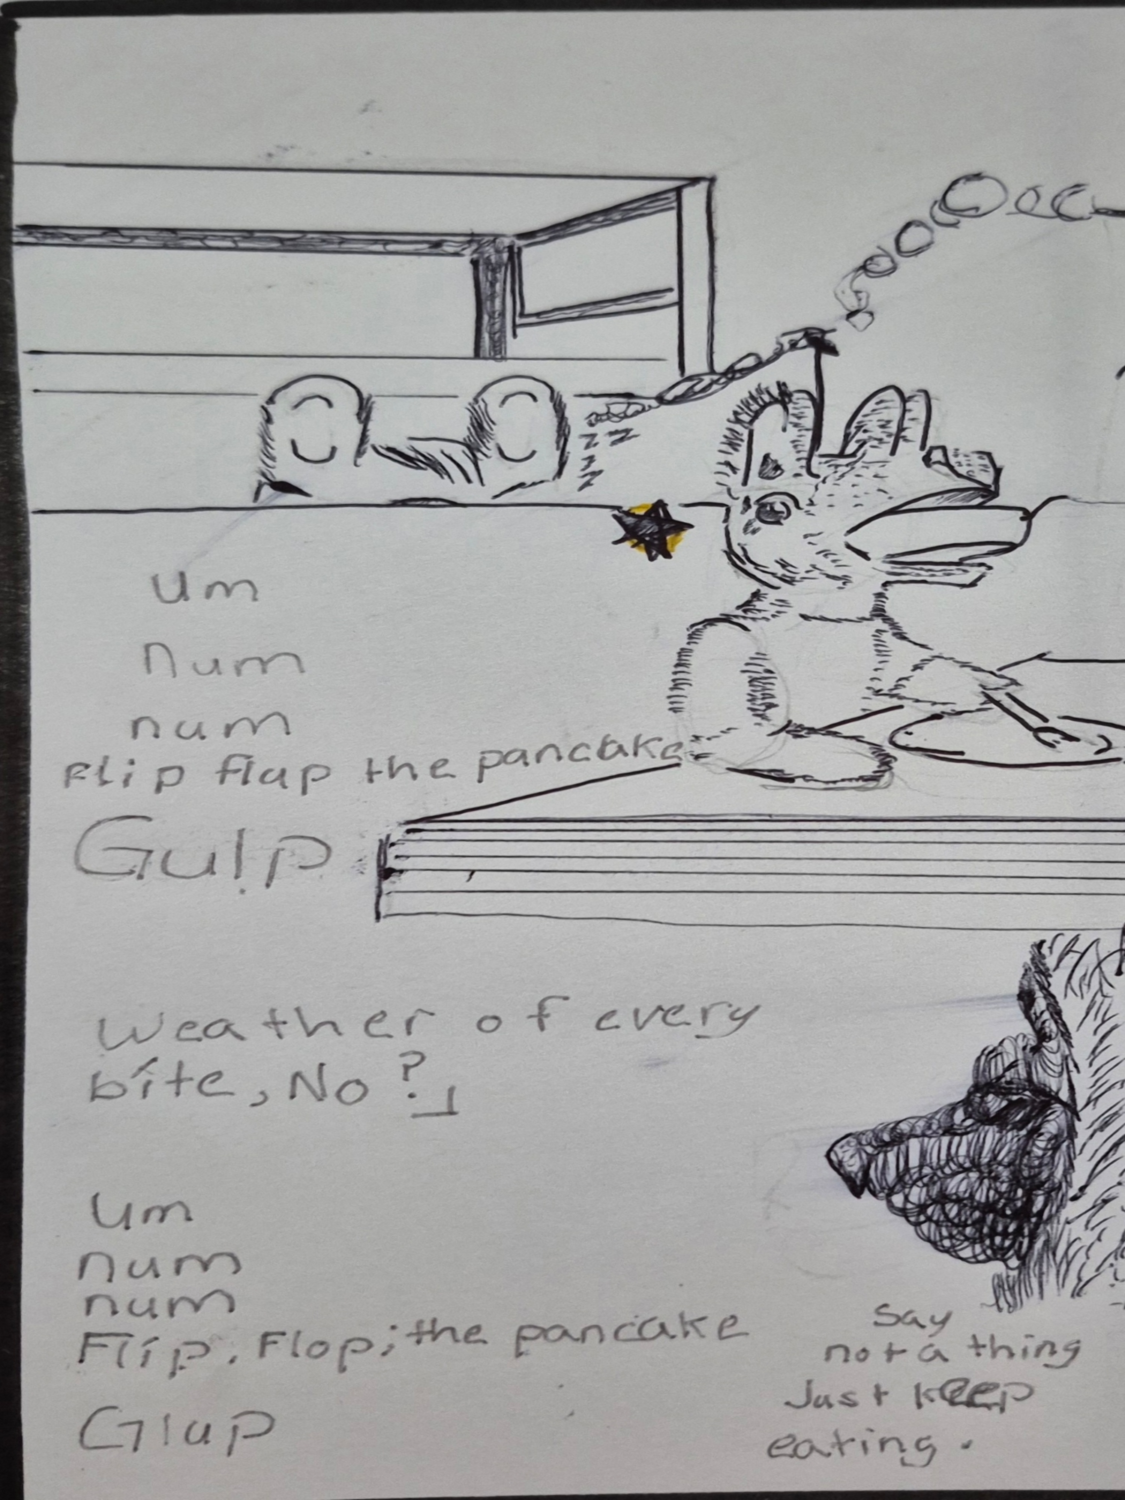 z z
z
z
um
num
num
Flip flap the pancake
Gulp
Weather of every
bite, No?
Um
num
num
Flip, Flop; the pancake
Glup
Say
not a thing
Just keep
eating.